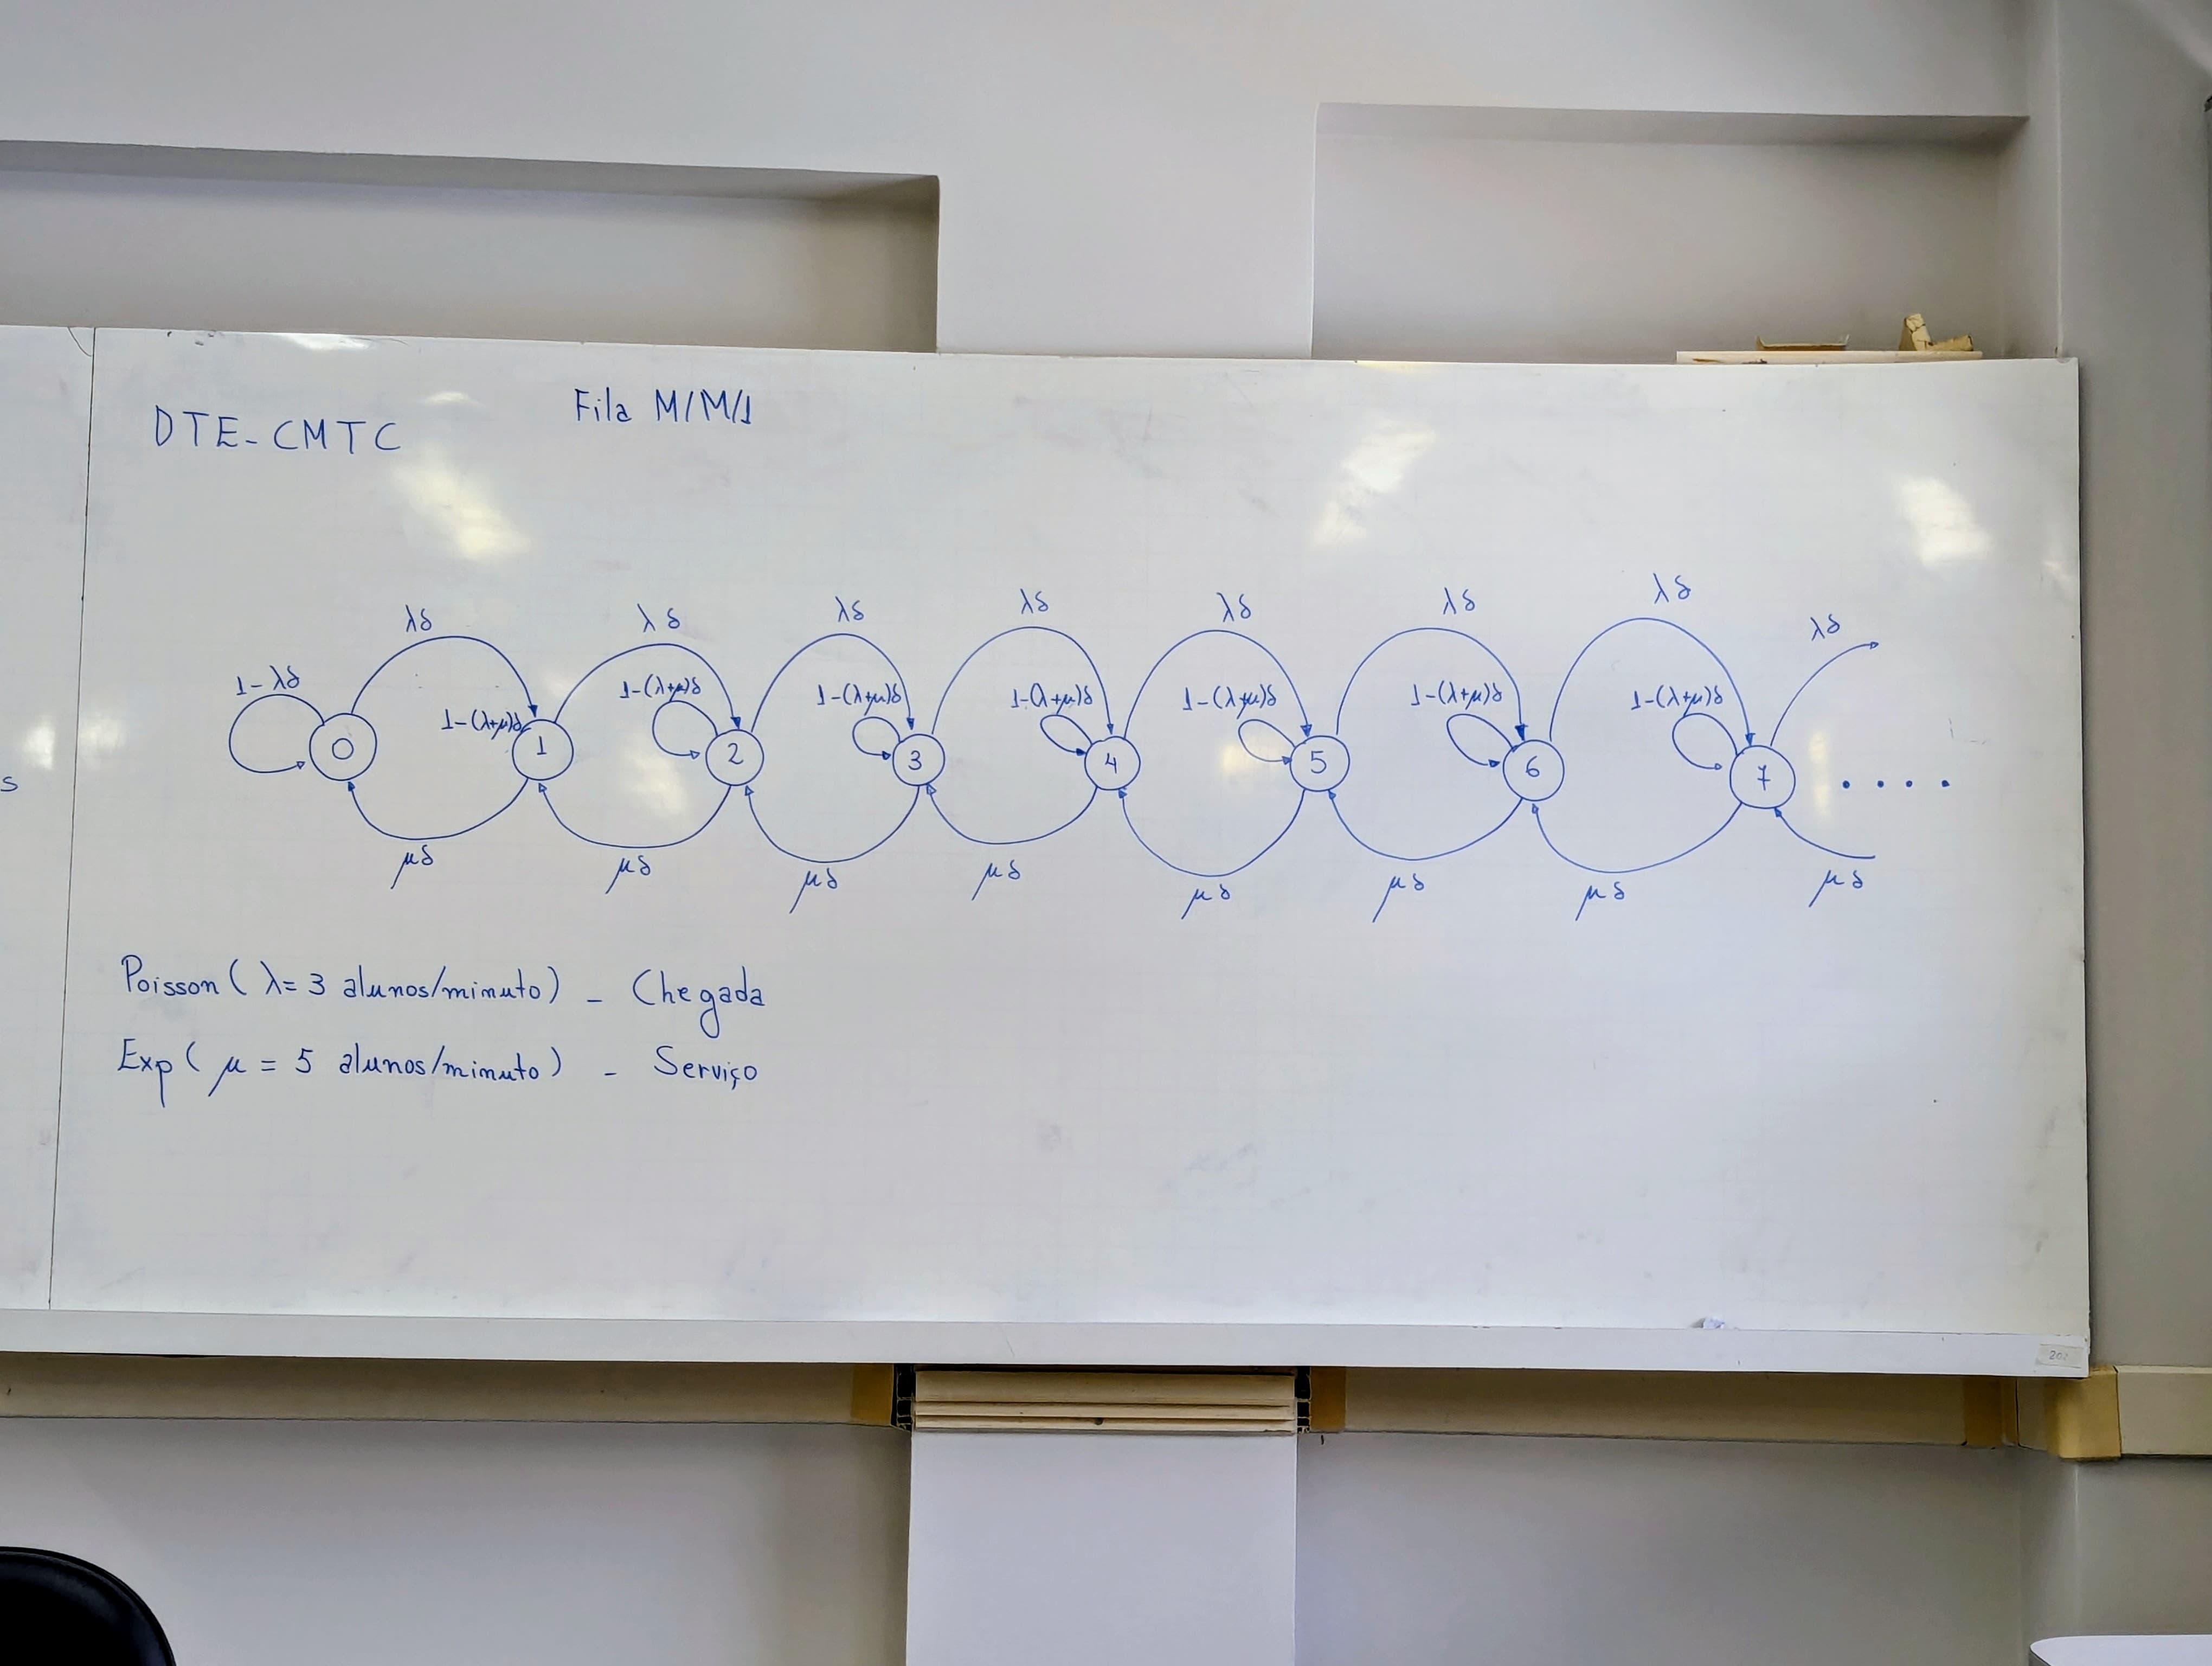 DTE-CMTC
Fila M/M/1
λδ λδ λδ λδ λδ λδ λδ λδ
1-λδ 1-(λ+μ)δ 1-(λ+μ)δ 1-(λ+μ)δ 1-(λ+μ)δ 1-(λ+μ)δ 1-(λ+μ)δ 1-(λ+μ)δ
0 1 2 3 4 5 6 7 ....
μδ μδ μδ μδ μδ μδ μδ μδ
s
Poisson (λ= 3 alunos/minuto) - Chegada
Exp (μ = 5 alunos/minuto) - Serviço